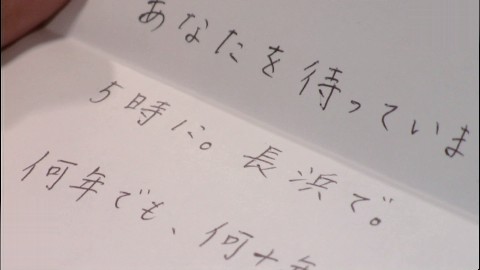 あなたを待っていま
5時に。長浜で。
何年でも、何十年